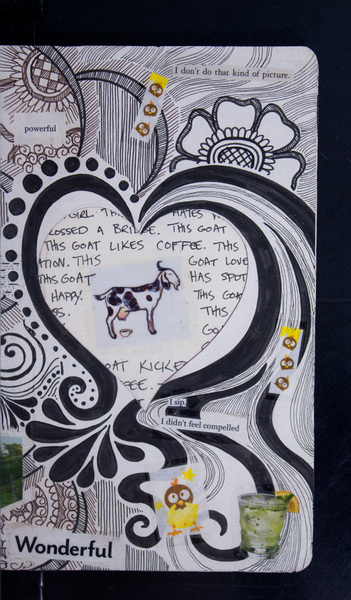 I don't do that kind of picture.
powerful
GIRL. THIS HATES
CROSSED A BRIDGE. THIS GOAT
THIS GOAT LIKES COFFEE. THIS
ATION. THIS GOAT LOVE
THIS GOAT HAS SPOT
HAPPY. THIS GOA
THIS
GO
OAT KICKE
EE.
I sip.
I didn't feel compelled
Wonderful